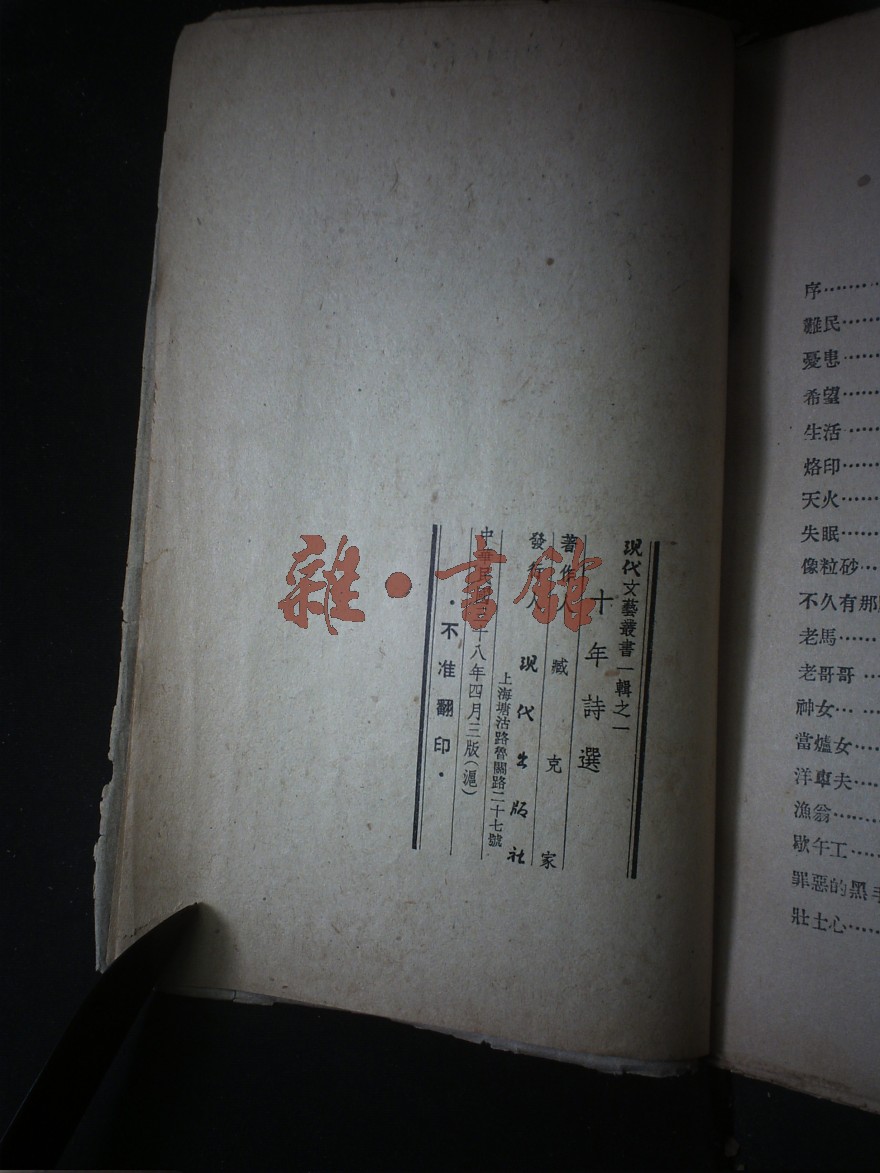 現代文藝叢書一輯之一
十年詩選
著作人 臧克家
發行人 現代出版社
上海塘沽路魯關路二十七號
中華民國三十八年四月三版(滬)
·不准翻印·
雜·書館
序……
難民……
憂患……
希望……
生活……
烙印……
天火……
失眠……
像粒砂…
不久有那
老馬……
老哥哥…
神女……
當爐女…
洋車夫…
漁翁……
歇午工…
罪惡的黑手
壯士心……